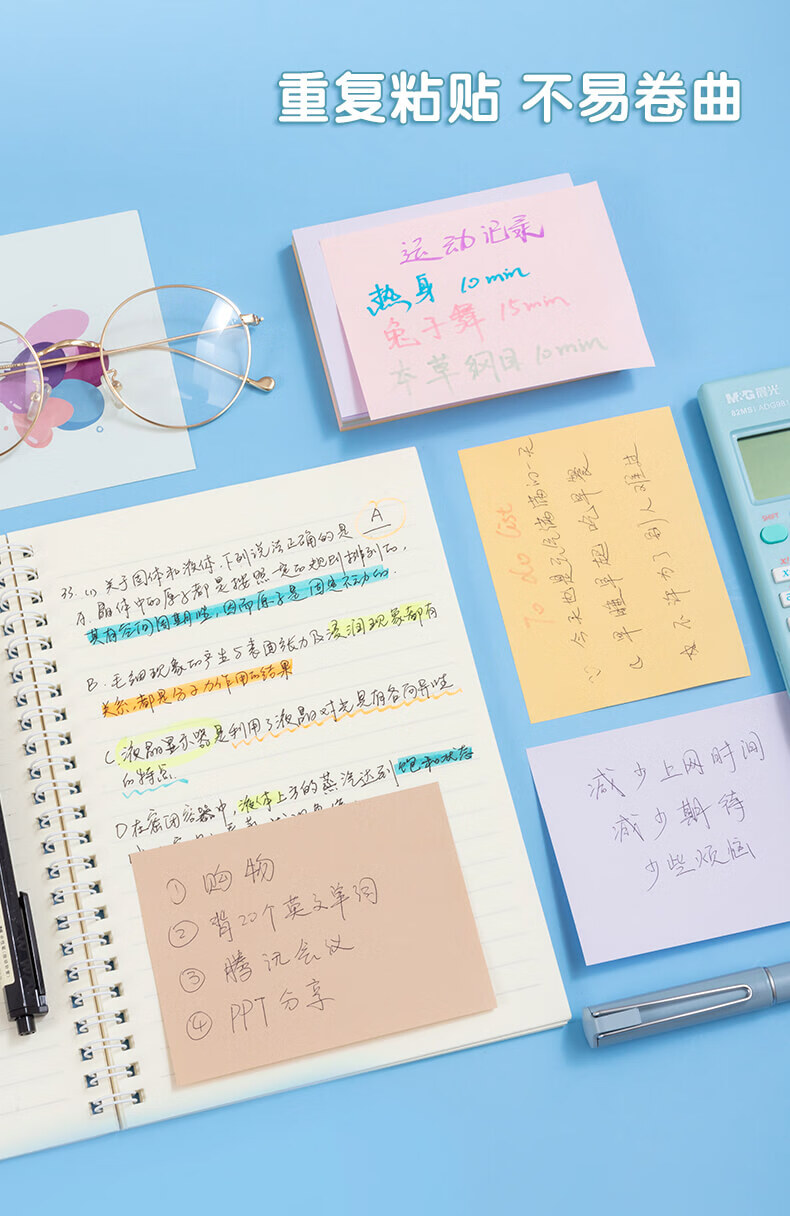 重复粘贴 不易卷曲
运动记录
热身 10min
兔子舞 15min
本草纲目 10min
M&G晨光
82MS
SHIFT
To do list
今天也是元气满满的一天
早睡早起 吃早餐
不许为了别人难过
A
33.(1) 关于固体和液体，下列说法正确的是
A. 晶体中的原子都是按照一定的规则排列的，
其有空间周期性，因而原子是固定不动的.
B. 毛细现象的产生与表面张力及浸润现象都有
关系，都是分子力作用的结果
C. 液晶显示器是利用了液晶对光具有各向异性
的特点.
D 在密闭容器中，液体上方的蒸汽达到饱和状态
减少上网时间
减少期待
少些烦恼
① 购物
② 背20个英文单词
③ 腾讯会议
④ PPT分享